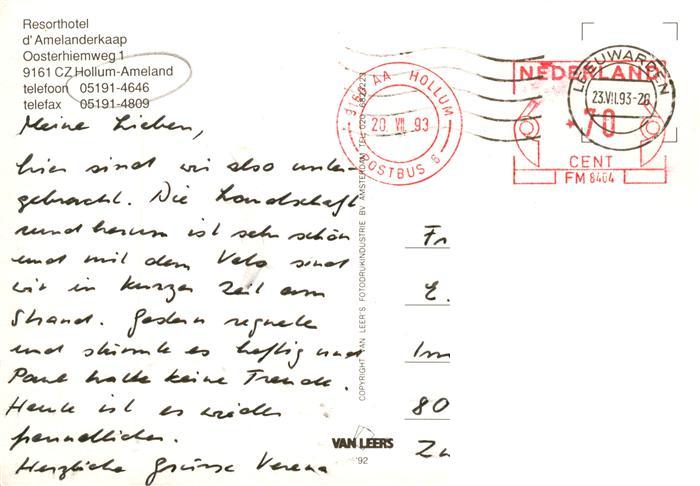 Resorthotel
d'Amelanderkaap
Oosterhiemweg 1
9161 CZ Hollum-Ameland
telefoon 05191-4646
telefax 05191-4809
Meine Lieben,
hier sind wir also unter-
gebracht. Die Landschaft
rundherum ist sehr schön
und mit dem Velo sind
wir in kurzer Zeit am
Strand. Gestern regnete
und stürmte es heftig und
Paul hatte keine Freude.
Heute ist es wieder
freundlicher.
Herzliche Grüsse Verena
9160 AA HOLLUM
20. VII. 93
POSTBUS 8
LEEUWARDEN
23.VII.93-20
NEDERLAND
70
CENT
FM 8404
COPYRIGHT VAN LEER'S FOTODRUKINDUSTRIE BV AMSTERDAM TEL 020-
VAN LEERS
'92
Fr
E.
Im
80
Zu